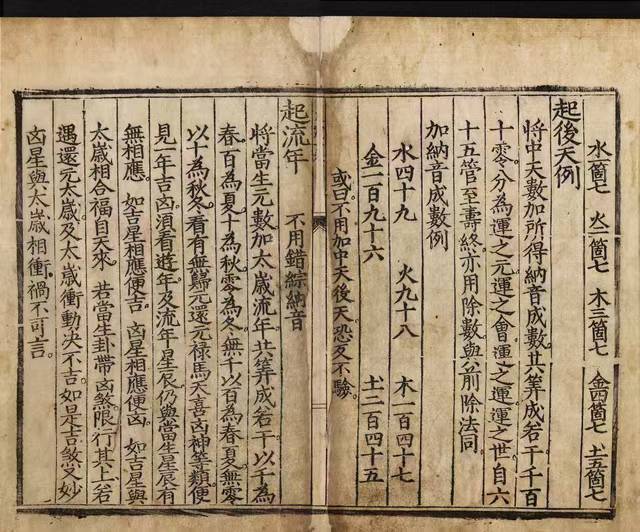 水一箇七 火二箇七 木三箇七 金四箇七 土五箇七
起後天例
將中天數加所得納音成數共筭成若干千百
十零分為運之元運之會運之運運之世自六
十五管至壽終亦用除數與前除法同
加納音成數例
水四十九 火九十八 木一百四十七
金一百九十六 土二百四十五
或曰不用加中天後天恐反不驗
起流年 不用錯綜納音
將當生元數加太歲流年共筭成若干以千為
春百為夏十為秋零為冬無千以百為春夏無零
以十為秋冬看有無歸元還元祿馬天喜凶神等類便
見一年吉凶須看遊年及流年星辰仍與當生星辰有
無相應。如吉星相應便吉。凶星相應便凶。如吉星與
太歲相合福自天來。若當生卦帶凶煞限行其上若
遇還元太歲及太歲衝動決不吉如是吉煞又妙
凶星與太歲相衝禍不可言。